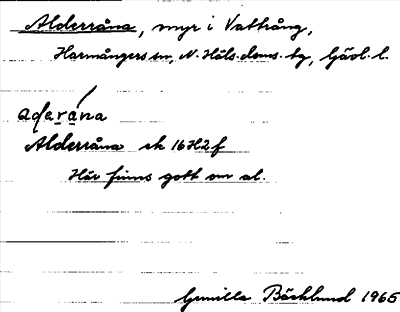 Alderråna, myr i Vattrång,
Harmångers sn, N. Häls. doms. tg, Gävl. l.
aderána
Alderråna sk 16H2f
Här finns gott om al.
Gunilla Bäcklund 1965